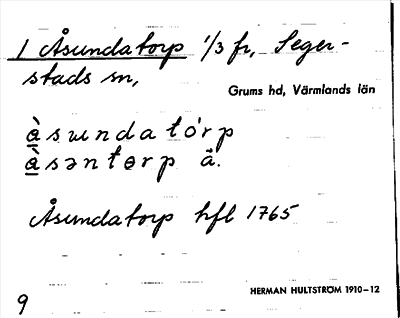 1 Åsundatorp 1/3 fr, Seger-
stads sn,
Grums hd, Värmlands län
å̀sɯndatórp
å̀səntɵrp ä.
Åsundatorp hfl 1765
HERMAN HULTSTRÖM 1910–12
9